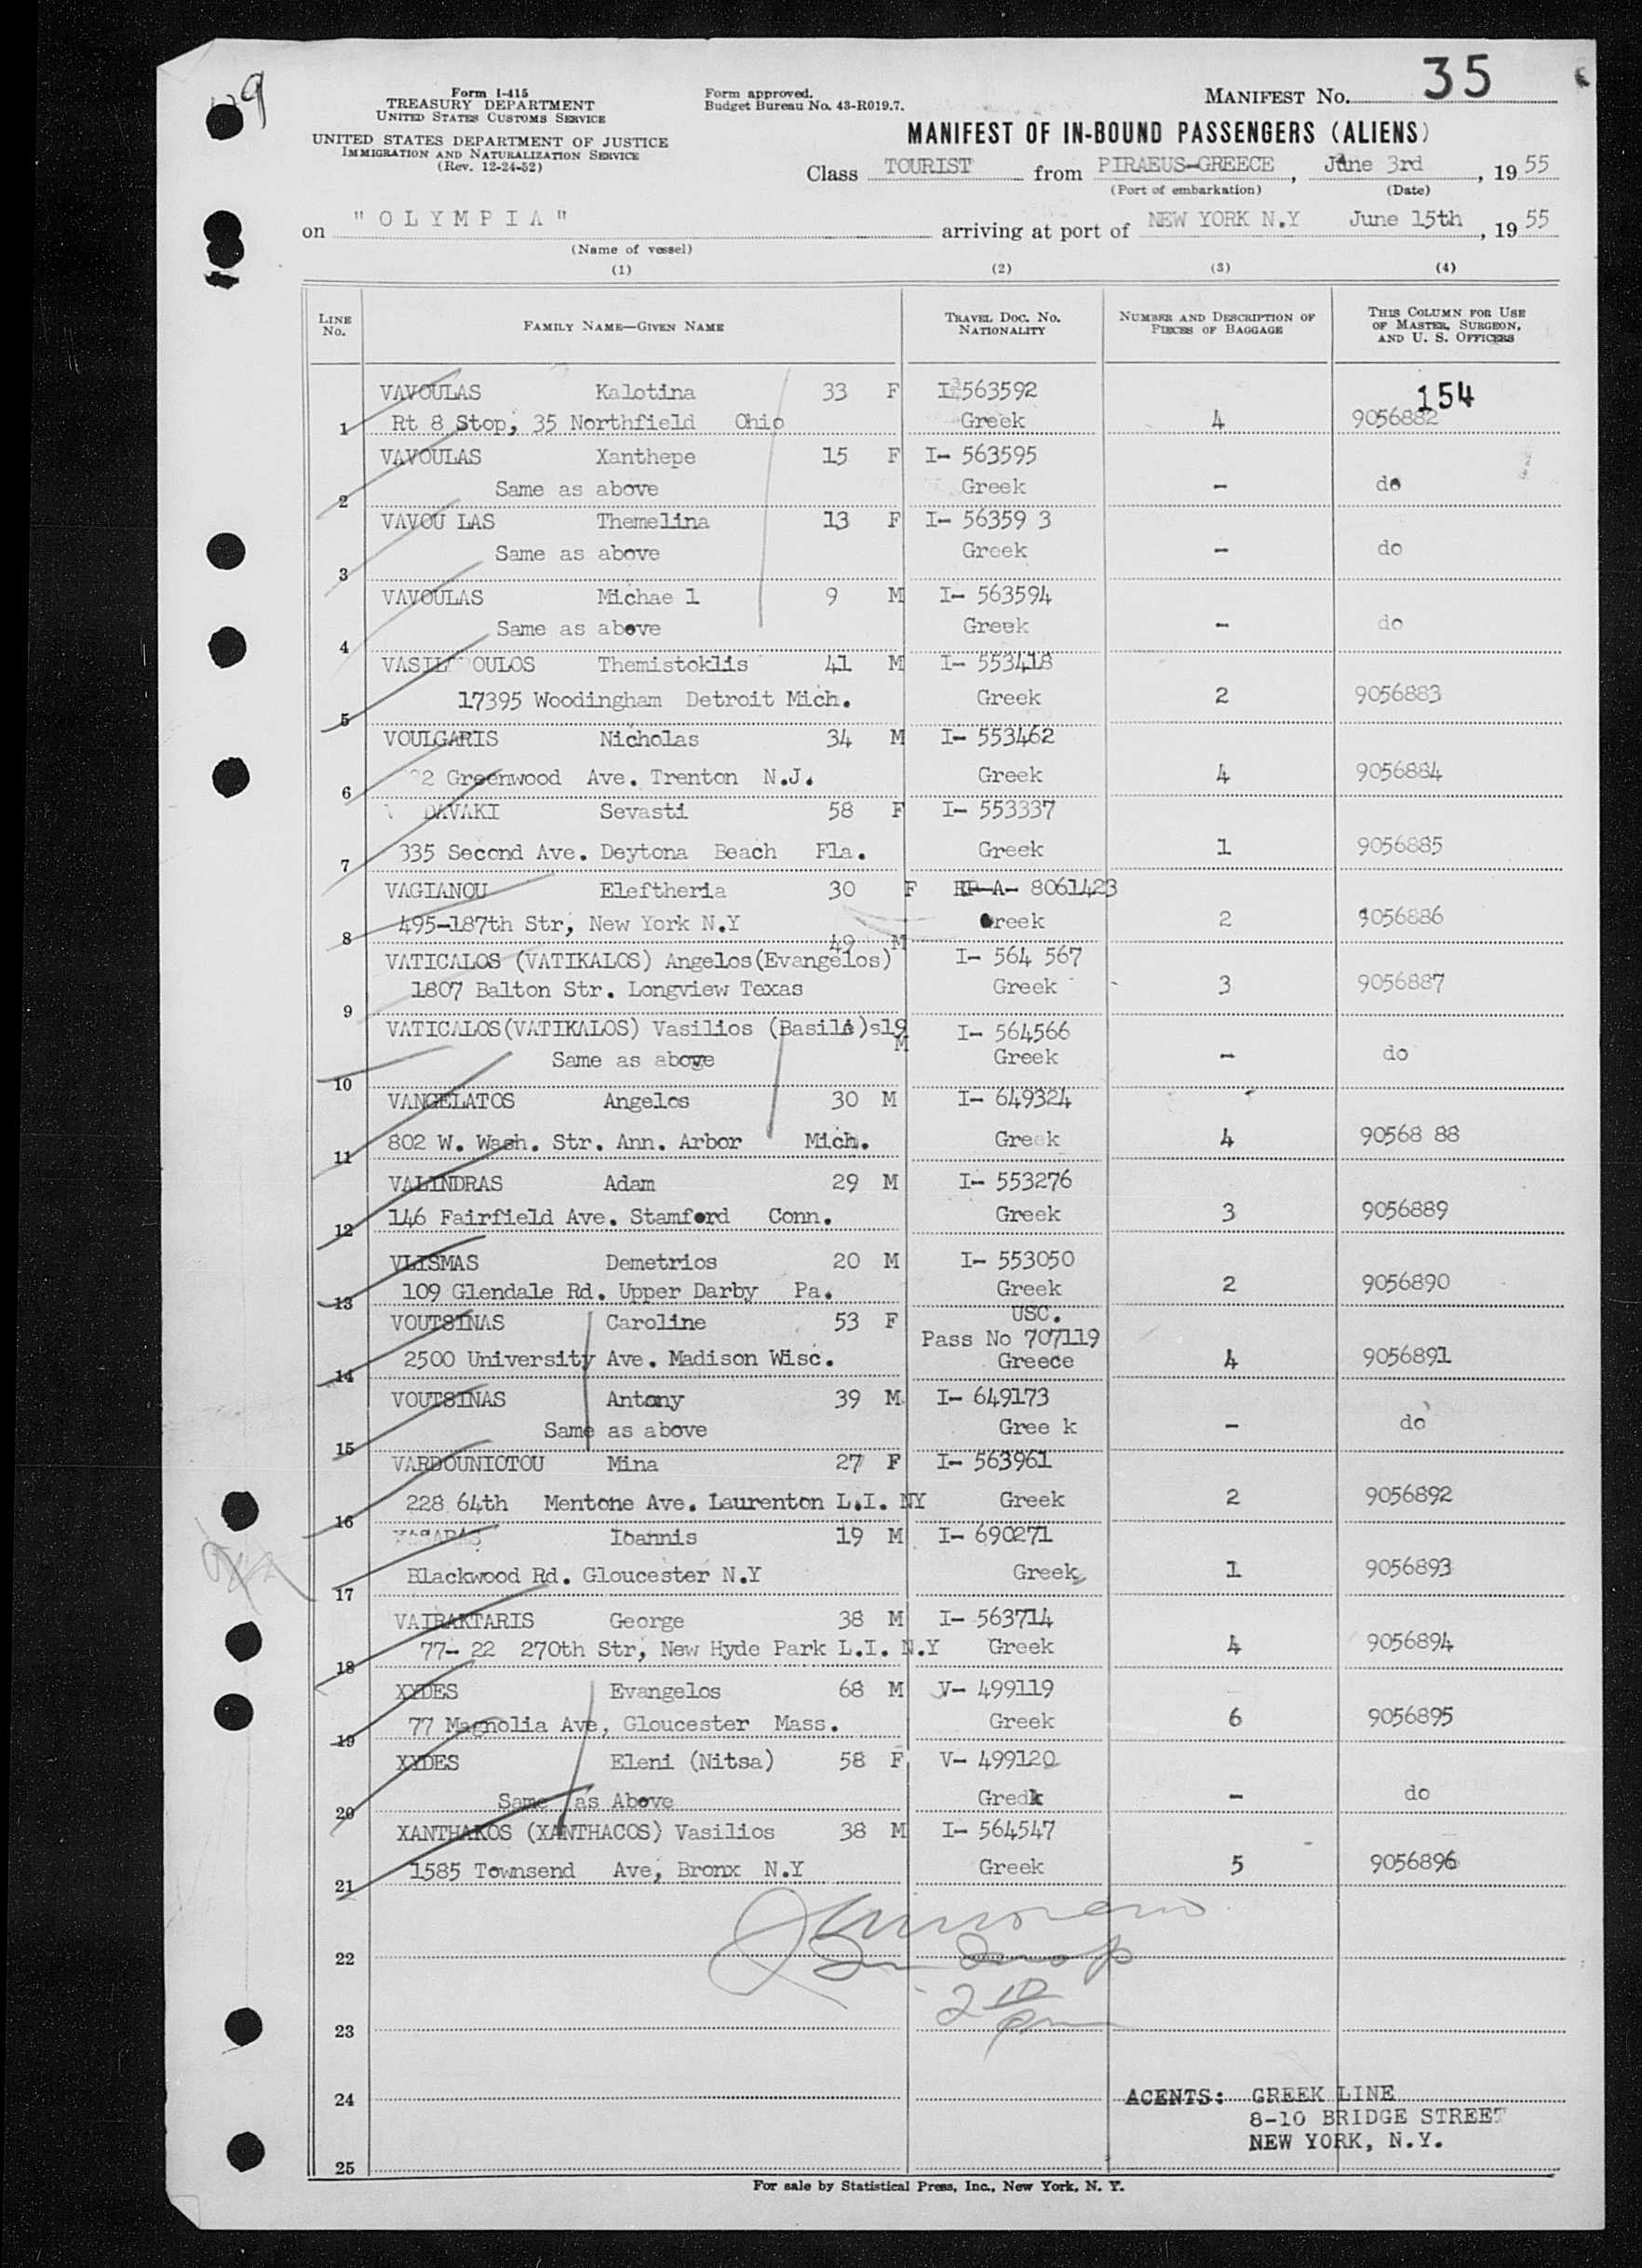 9
Form I-415
TREASURY DEPARTMENT
UNITED STATES CUSTOMS SERVICE
UNITED STATES DEPARTMENT OF JUSTICE
IMMIGRATION AND NATURALIZATION SERVICE
(Rev. 12-24-52)
Form approved.
Budget Bureau No. 43-R019.7.
MANIFEST No. 35
MANIFEST OF IN-BOUND PASSENGERS (ALIENS)
Class TOURIST from PIRAEUS-GREECE, June 3rd, 1955
(Port of embarkation) (Date)
on "OLYMPIA" arriving at port of NEW YORK N.Y June 15th, 1955
(Name of vessel)
(1) (2) (3) (4)
LINE No. FAMILY NAME—GIVEN NAME TRAVEL DOC. NO. NATIONALITY NUMBER AND DESCRIPTION OF PIECES OF BAGGAGE THIS COLUMN FOR USE OF MASTER, SURGEON, AND U. S. OFFICERS
154
VAVOULAS Kalotina 33 F I-563592
1 Rt 8 Stop, 35 Northfield Ohio Greek 4 9056882
VAVOULAS Xanthepe 15 F I- 563595
2 Same as above Greek - do
VAVOU LAS Themelina 13 F I- 56359 3
3 Same as above Greek - do
VAVOULAS Michae l 9 M I- 563594
4 Same as above Greek - do
OULOS Themistoklis 41 M I- 553418
5 17395 Woodingham Detroit Mich. Greek 2 9056883
VOULGARIS Nicholas 34 M I- 553462
6 2 Greenwood Ave. Trenton N.J. Greek 4 9056884
DAVAKI Sevasti 58 F I- 553337
7 335 Second Ave. Deytona Beach Fla. Greek 1 9056885
VAGIANOU Eleftheria 30 F RP-A- 8061423
8 495-187th Str, New York N.Y Greek 2 9056886
49 M
VATICALOS (VATIKALOS) Angelos(Evangelos) I- 564 567
9 1807 Balton Str. Longview Texas Greek 3 9056887
VATICALOS(VATIKALOS) Vasilios (Basil)s19 M I- 564566
10 Same as above Greek - do
VANGELATOS Angelos 30 M I- 649324
11 802 W. Wash. Str. Ann. Arbor Mich. Greek 4 90568 88
VALINDRAS Adam 29 M I- 553276
12 146 Fairfield Ave. Stamford Conn. Greek 3 9056889
VLISMAS Demetrios 20 M I- 553050
13 109 Glendale Rd. Upper Darby Pa. Greek 2 9056890
VOUTSINAS Caroline 53 F USC.
Pass No 707119
14 2500 University Ave. Madison Wisc. Greece 4 9056891
VOUTSINAS Antony 39 M I- 649173
15 Same as above Gree k - do
VARDOUNIOTOU Mina 27 F I- 563961
16 228 64th Mentone Ave. Laurenton L.I. NY Greek 2 9056892
Ioannis 19 M I- 690271
17 Blackwood Rd. Gloucester N.Y Greek 1 9056893
VAIRAKTARIS George 38 M I- 563714
18 77- 22 270th Str, New Hyde Park L.I. N.Y Greek 4 9056894
XYDES Evangelos 68 M V- 499119
19 77 Magnolia Ave, Gloucester Mass. Greek 6 9056895
XYDES Eleni (Nitsa) 58 F V- 499120
20 Same as Above Gredk - do
XANTHAKOS (XANTHACOS) Vasilios 38 M I- 564547
21 1585 Townsend Ave, Bronx N.Y Greek 5 9056896
22
2 10 pm
23
24 AGENTS: GREEK LINE
8-10 BRIDGE STREET
NEW YORK, N.Y.
25
For sale by Statistical Press, Inc., New York, N. Y.